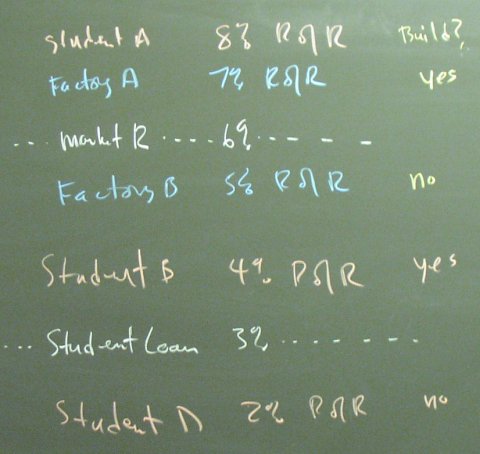 Student A 8% R of R Build?
Factory A 7% R of R yes
... Market R .... 6% ... - - -
Factory B 5% R of R no
Student B 4% R of R yes
... Student Loan 3% ........
Student D 2% R of R no